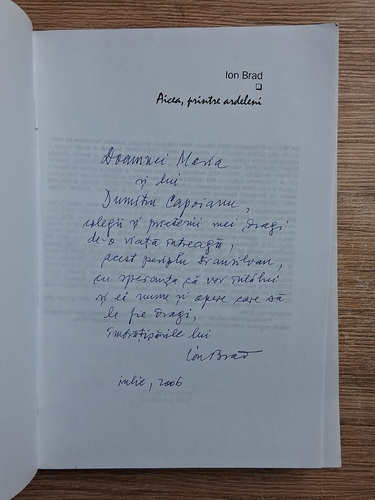 Ion Brad
Aicea, printre ardeleni
Doamnei Maria
și lui
Dumitru Capoianu,
colegii și prietenii mei dragi
de-o viață întreagă,
acest periplu transilvan,
cu speranța că vor întâlni
și ei nume și opere care să
le fie dragi,
Îmbrățișările lui
Ion Brad
iulie, 2006